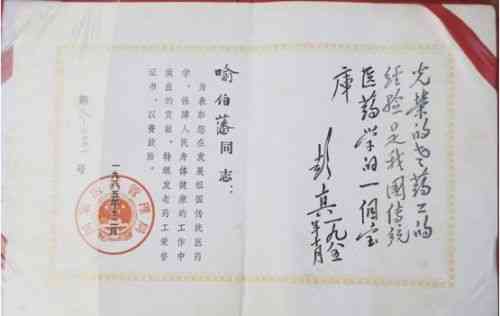 光荣的老药工的
经验是我国传统
医药学的一个宝
库
彭真一九八五
年十月
喻伯藩同志：
为表彰您在发展祖国传统医药
学，保障人民身体健康的工作中
做出的贡献，特颁发老药工荣誉
证书，以资鼓励。
国家医药管理局
一九八五年十二月
第 号